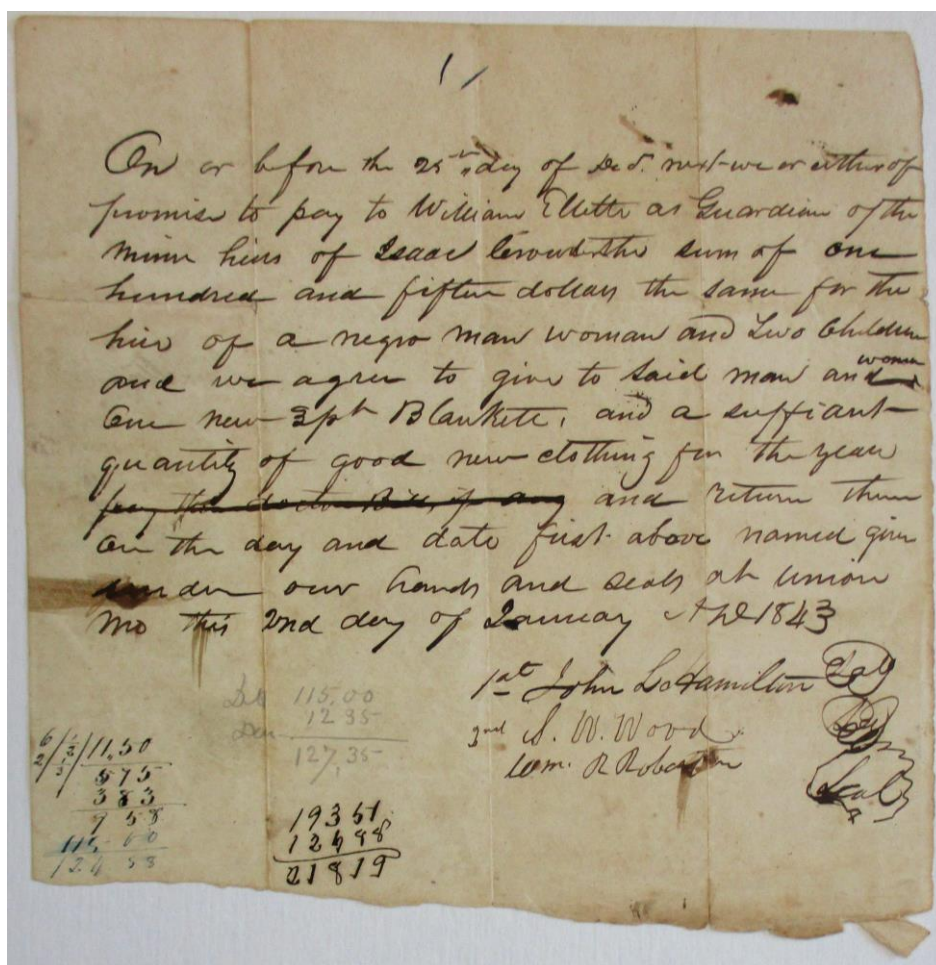 1/
On or before the 25th day of Decr. next we or either of
promise to pay to William Ellette as Guardian of the
minor heirs of Isaac the sum of one
hundred and fifteen dollars the same for the
hire of a negro man woman and Two Children
and we agree to give to said man and woman
One new 3pt Blankett, and a suffiant
quantity of good new clothing for the year
pay the doctor Bill, if any and return them
on the day and date first above named given
under our hands and seals at Union
Mo this 2nd day of January AD 1843
1st John L Hamilton Seal
2nd S. W. Wood Seal
Wm. R Robertson Seal
Deb 115,00
12 35
127,35
6/ 1/3/ 11,50
2
575
383
9 58
115 00
124 58
193 51
124 88
21819